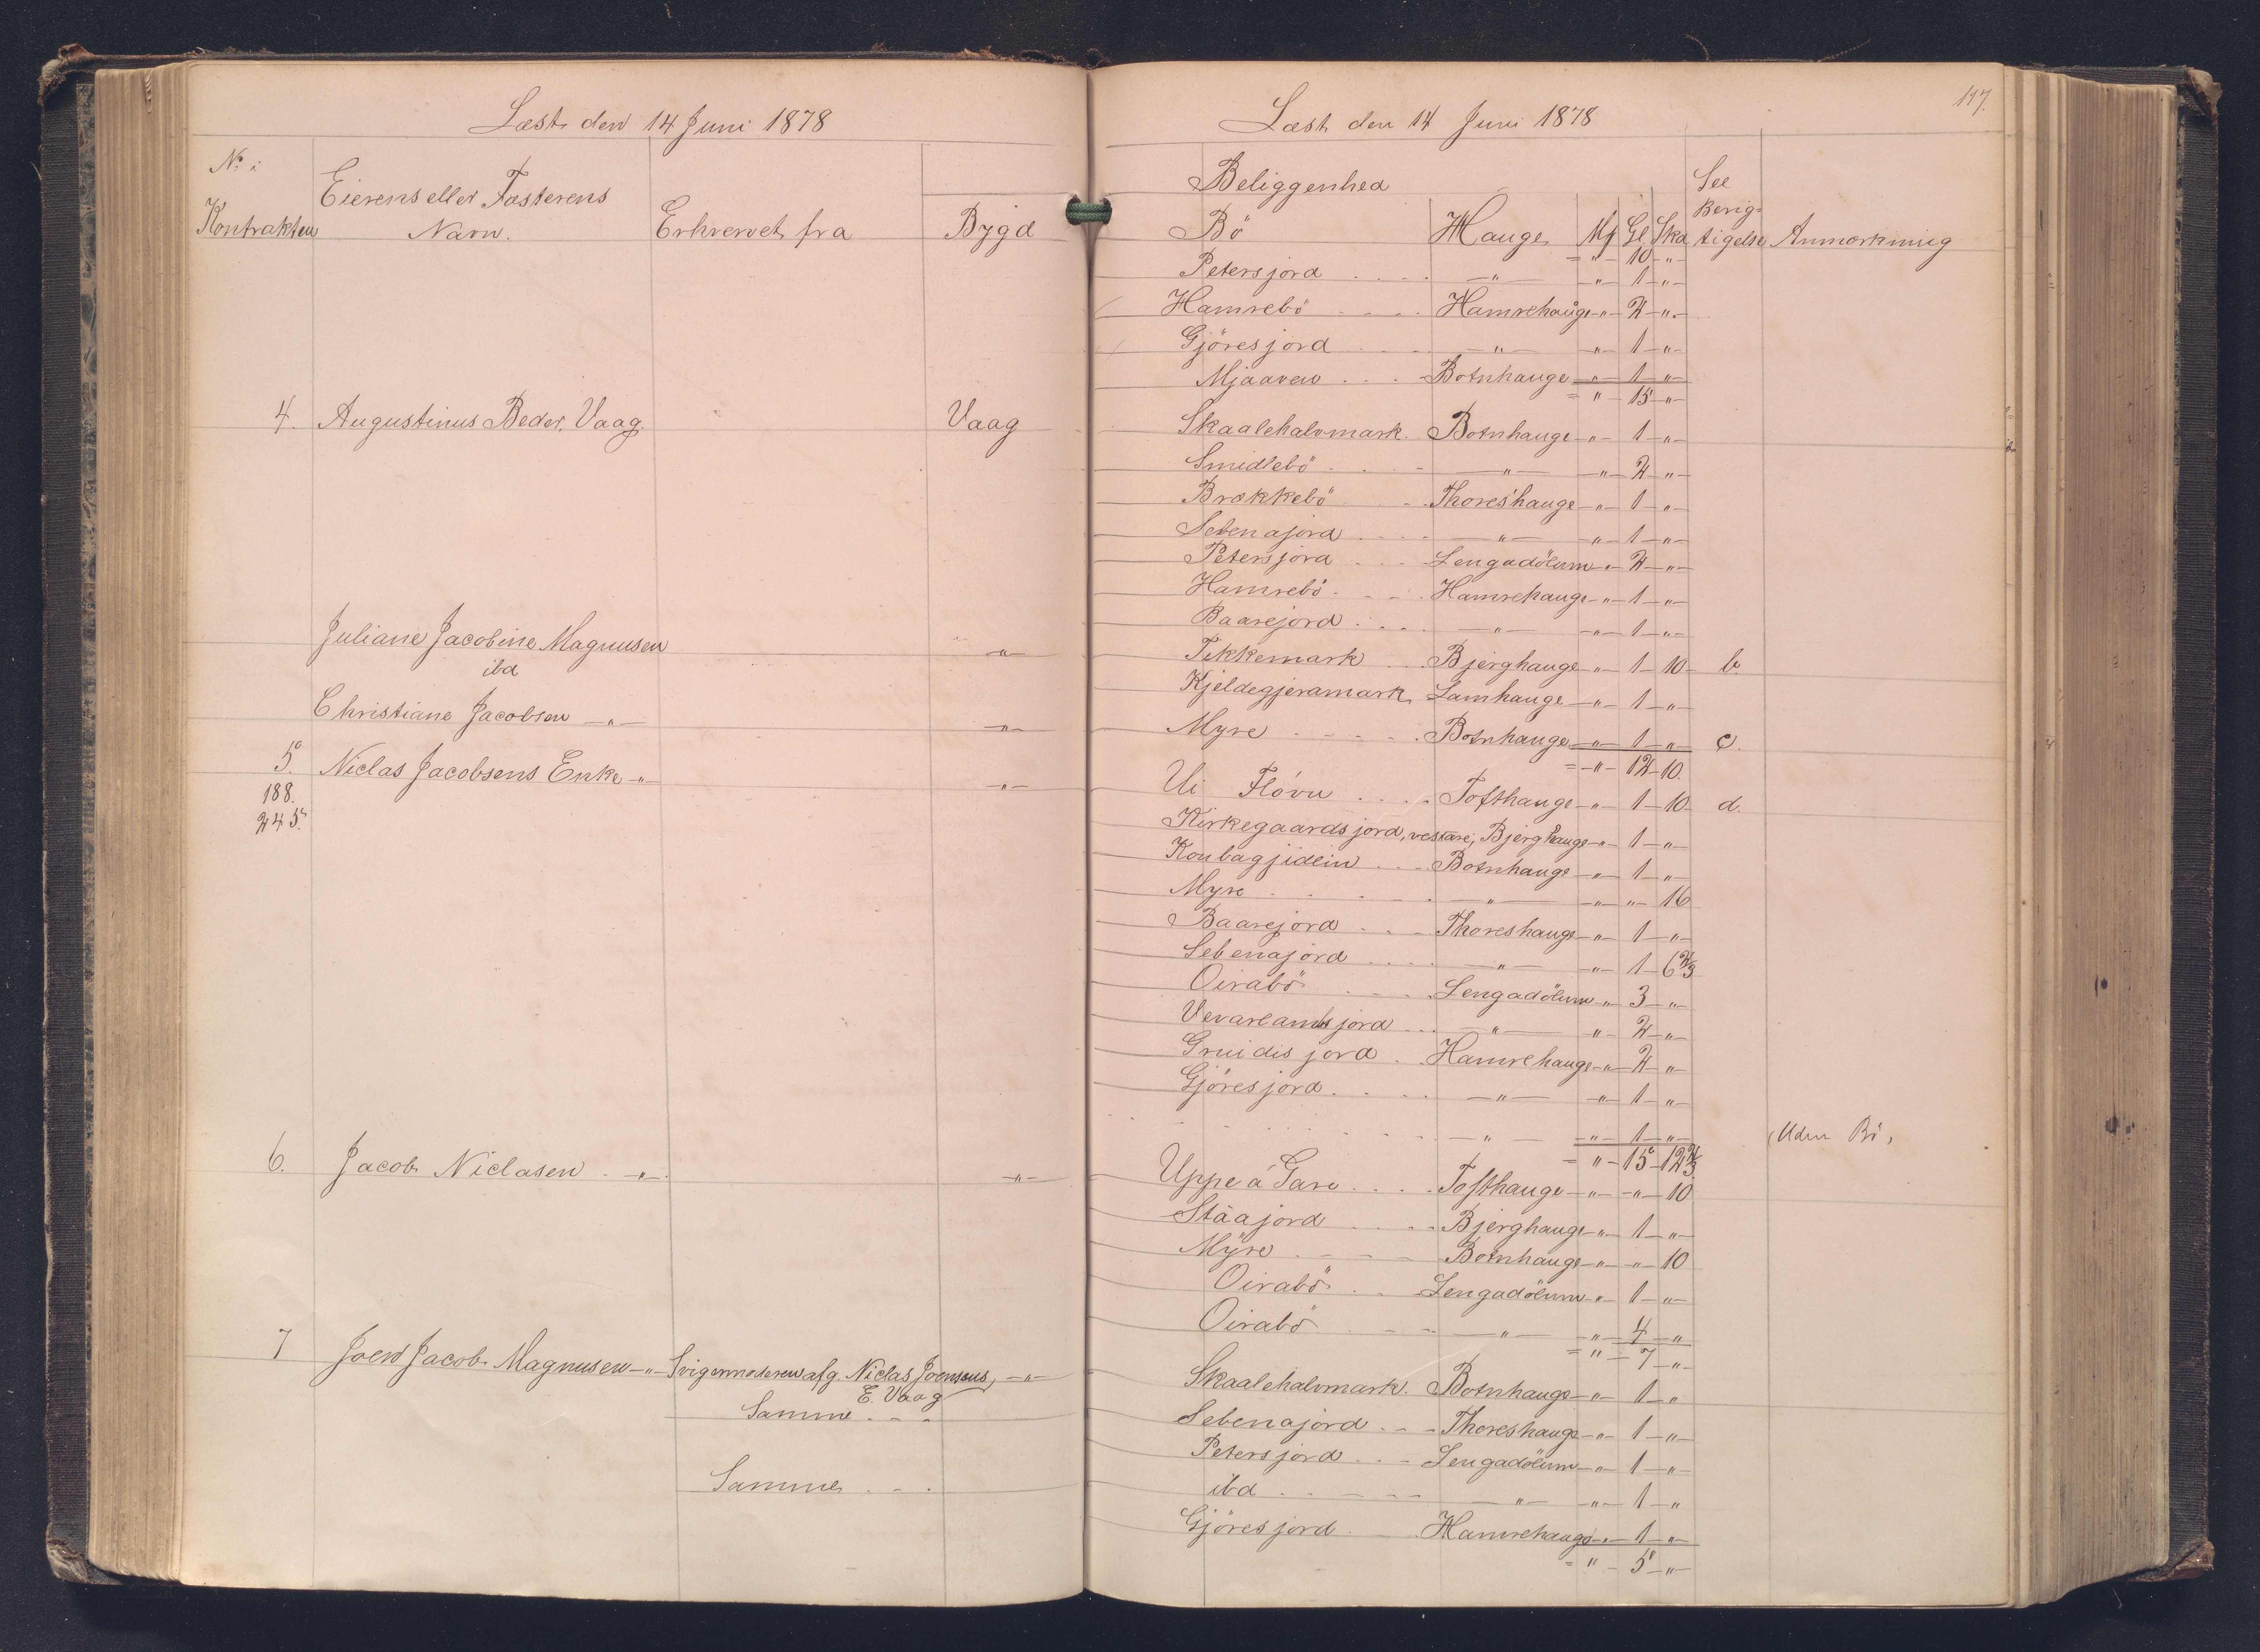 Læst den 14 Juni 1878
No i
Kontrakten
Eierens eller Fæsterens
Navn.
Erhvervet fra
Bygd
4. Augustinus Peder. Vaag. Vaag
Juliane Jacobine Magnusen —"—
ibd
Christiane Jacobsen —"— —"—
5. Niclas Jacobsens Enke —"— —"—
188.
245.
6. Jacob Niclasen —"— —"—
7 Joen Jacob Magnusen —"— Svigermoderen afg. Niclas Joensens, —"—
E. Vaag
Samme
Samme
117.
Læst den 14 Juni 1878
Beliggenhed
See
Berig=
Bö Hauge Mk Gl Ska tigelse Anmærkning
= " — 10 — "
Petersjord . . . . —"— —"— 1 —"—
Hamrebö . . . . Hamrehauge —"— 2 —"—
Gjöresjord . . . —"— —"— 1 —"—
Mjaaven . . . Botnhauge —"— 1 —"—
= " — 15 —"—
Skaalehalvmark. Botnhauge —"— 1 —"—
Smidlebö . . . —"— —"— 2 —"—
Brækkebö . . . Thoreshauge —"— 1 —"—
Sebenajord . . . —"— —"— 1 —"—
Petersjord . . . Lengadölum —"— 2 —"—
Hamrebö . . . Hamrehauge —"— 1 —"—
Baarejord . . . —"— —"— 1 —"—
Tekkemark . . Bjerghauge —"— 1 — 10 — b.
Kjeldegjeramark, Lamhauge —"— 1 —"—
Myre . . . . . Botnhauge —"— 1 —"— c.
= —"— 12 — 10.
Ui Flóvu . . . . Tofthauge —"— 1 — 10 d.
Kirkegaardsjord, vestare, Bjerghauge —"— 1 —"—
Koubagjidlin . . . Botnhauge —"— 1 —"—
Myre . . . . . —"— —"— " — 16
Baarejord . . . Thoreshauge —"— 1 —"—
Sebenajord . . . . —"— —"— 1 — 6 2/3
Oirabö . . . . Lengadölum —"— 3 —"—
Vevarlambsjord . . . —"— —"— 2 —"—
Gruidisjord . Hamrehauge —"— 2 —"—
Gjöresjord . . . . —"— —"— 1 —"—
. . . . . . —"— —"— 1 —"— (Uden Bö,
= " — 15 — 12 2/3
Uppe á Gare . . . . Tofthauge —"— —"— 10
Stäajord . . . . Bjerghauge —"— 1 —"—
Myre . . . . Botnhauge —"— —"— 10
Oirabö . . . Lengadölum —"— 1 —"—
Oirabö . . . —"— —"— 4 — "
= " — 7 —"—
Skaalehalvmark. Botnhauge —"— 1 — "
Sebenajord . . . Thoreshauge —"— 1 —"—
Petersjord . . . Lengadölum —"— 1 —"—
ibd . . . . —"— —"— 1 — "
Gjöresjord . . Hamrehauge —"— 1 —"—
= " — 5 —"—